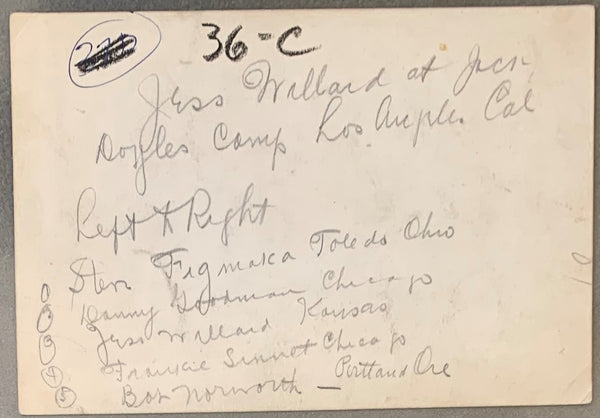 36-C
Jess Willard at Jack
Doyles Camp Los Angeles Cal
Left to Right
Steve Figmaka Toledo Ohio
① Danny Goodman Chicago
② Jess Willard Kansas
③ Frankie Sinnot Chicago
④ Bob Norworth — Portland Ore
⑤